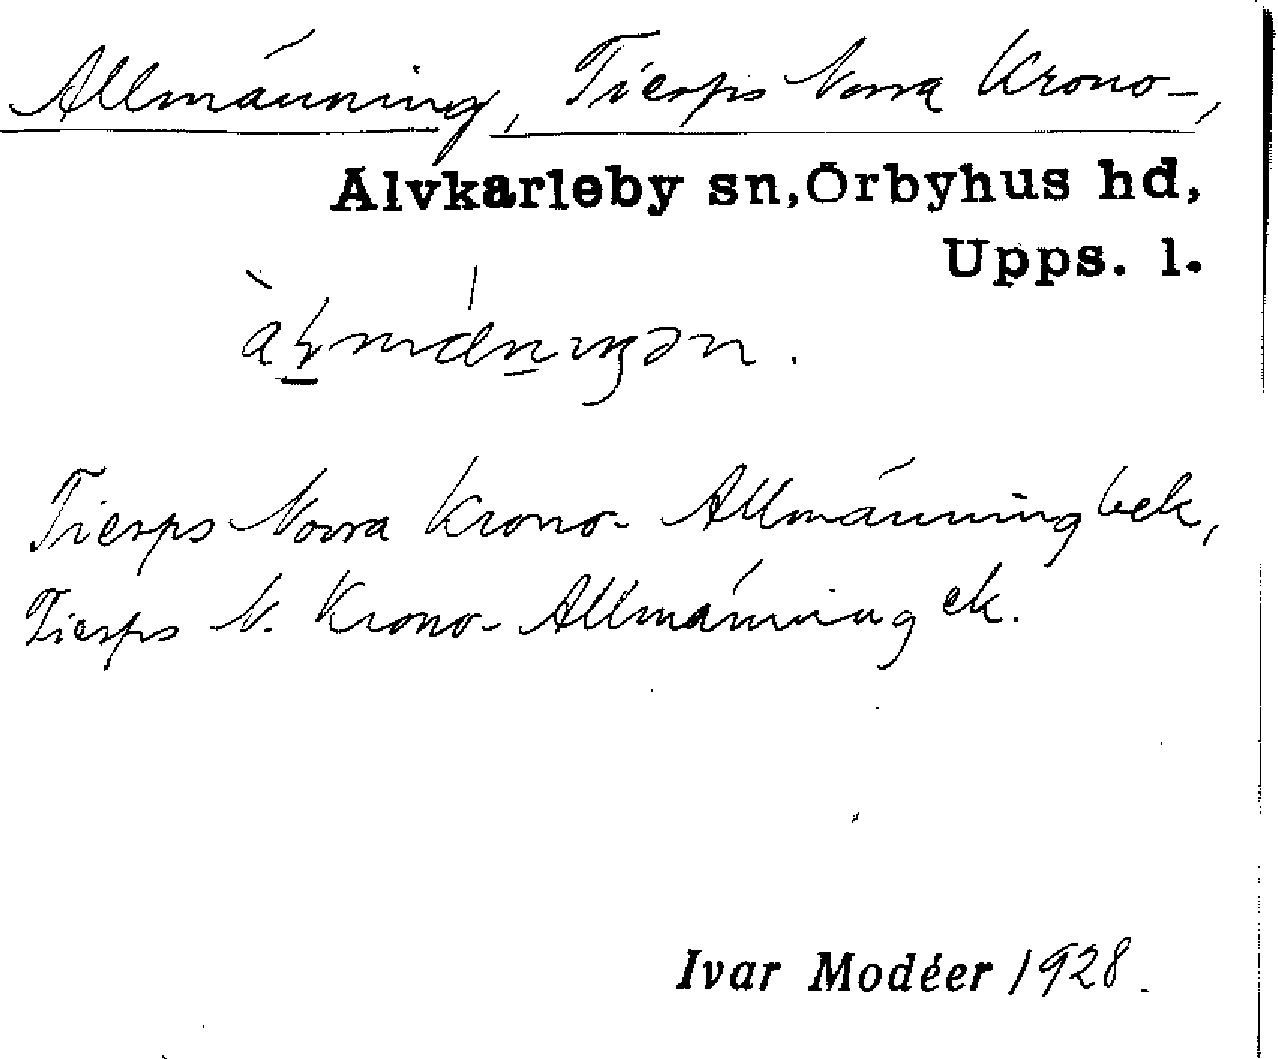 Allmänning, Tierps Norra Krono-,
Älvkarleby sn, Örbyhus hd,
Upps. l.
Tierps Norra Krono- Allmänning bek,
Tierps N. Krono- Allmänning ek.
Ivar Modéer 1928.